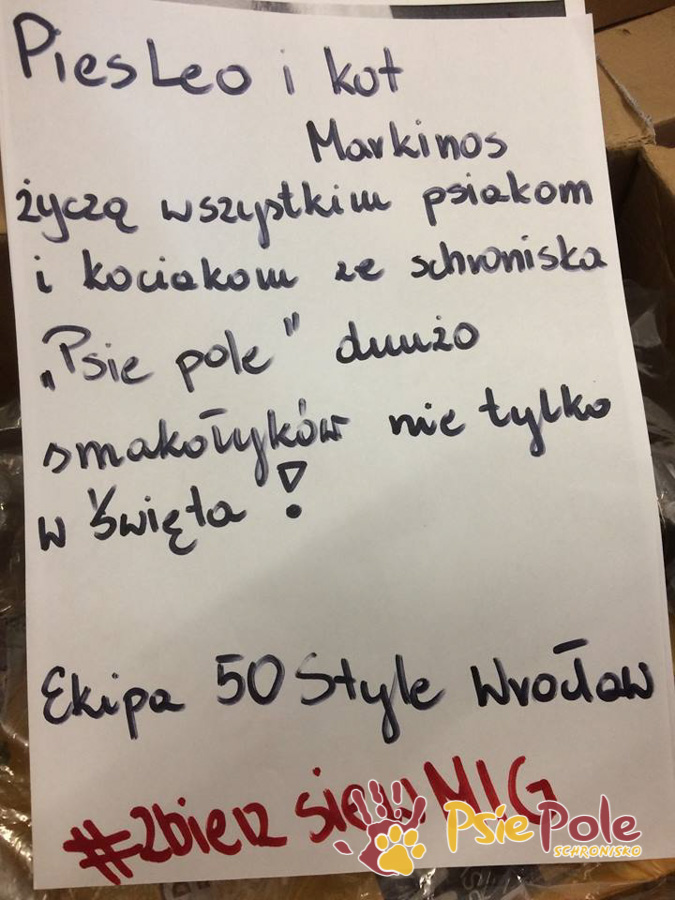 Pies Leo i kot
Markinos
życzą wszystkim psiakom
i kociakom ze schroniska
„Psie pole" duuużo
smakołyków nie tylko
w Święta!
Ekipa 50 Style Wrocław
#zbierz się w MIG
Psie Pole
SCHRONISKO